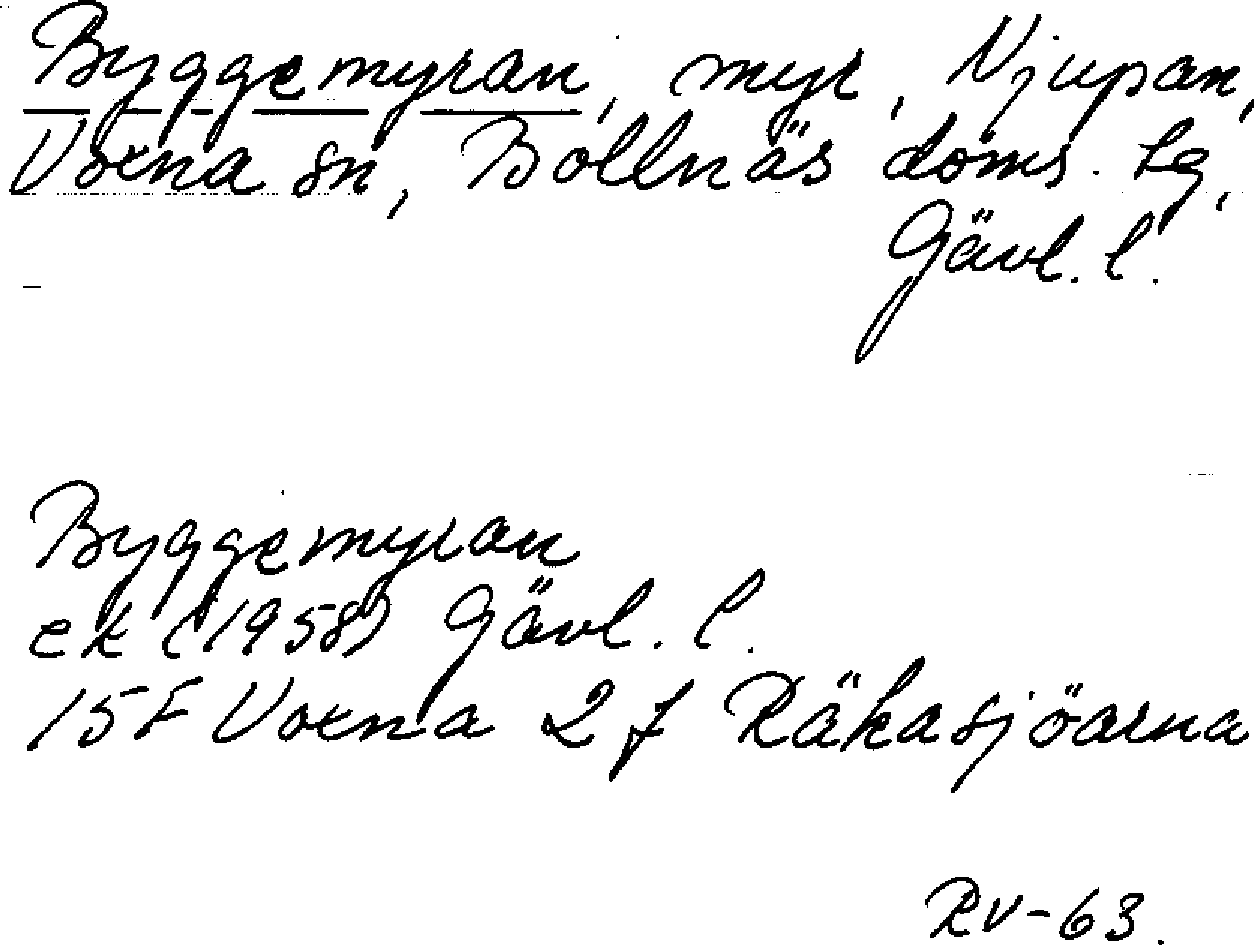 Byggemyran, myr, Njupan,
Voxna sn, Bollnäs doms. tg,
Gävl. l.
Byggemyran
ek (1958) Gävl. l.
15F Voxna 2 f Räkasjöarna
RV-63.